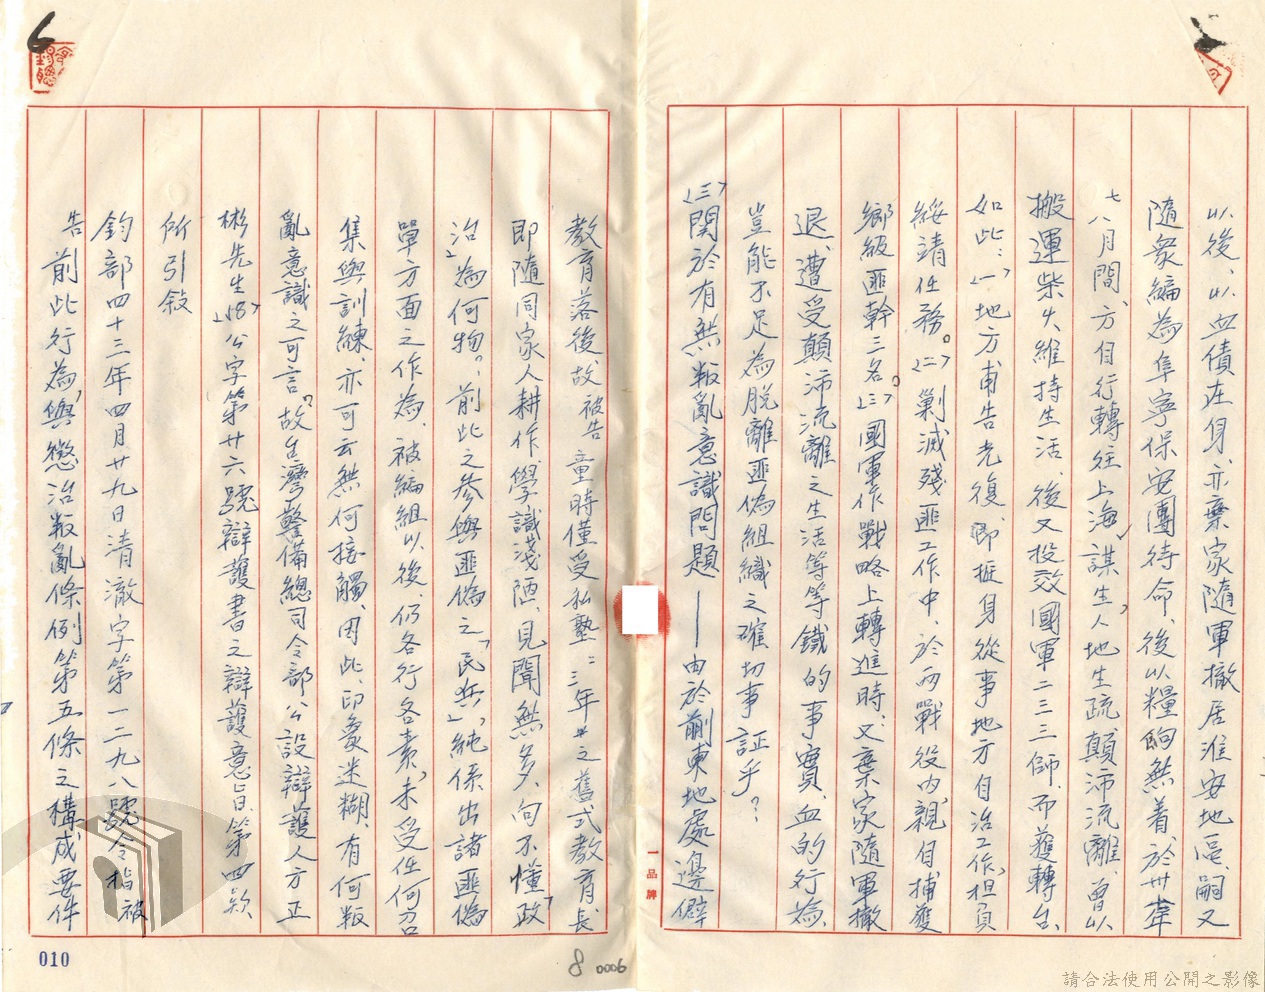 以後、以血債在身、亦棄家隨軍撤居淮安地區、嗣又
隨衆編為阜寧保安團待命、後以糧餉無着、於卅年
七八月間、方自行轉往上海謀生、人地生疏顛沛流離、曾以
搬運柴火維持生活、後又投效國軍二三三師、而獲轉台、
如此：㈠地方甫告光復、即挺身從事地方自治工作、担負
綏靖任務。㈡剿滅殘匪工作中、於兩戰役內、親自捕獲
鄉級匪幹三名。㈢國軍作戰略上轉進時、又棄家隨軍撤
退、遭受顛沛流離之生活等等鐵的事實、血的行為、
豈能不足為脫離匪偽組織之確切事証乎？
㈢關於有無叛亂意識問題——由於蘇東地處邊僻
教育落後、故被告童時僅受私塾二三年之舊式教育、長
即隨同家人耕作、學識淺陋、見聞無多、向不懂「政
治」為何物？前此之參與匪偽之「民兵」、純係出諸匪偽
單方面之作為、被編組以後、仍各行各素、未受任何召
集與訓練、亦可云無何接觸、因此、印象迷糊、有何叛
亂意識之可言、故台灣警備總司令部公設辯護人方正
彬先生(58)公字第廿六號辯護書之辯護意旨、第四款
所引敍
鈞部四十三年四月廿九日清澈字第一二九八號令指被
告前此行為、與懲治叛亂條例第五條之構成要件
一品牌
010
8 0006
6
請合法使用公開之影像